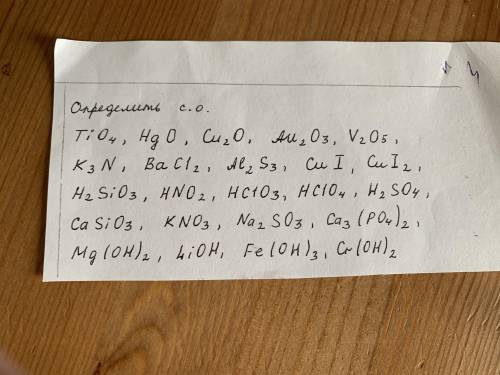 Определить с.о.
TiO4, HgO, Cu2O, Au2O3, V2O5,
K3N, BaCl2, Al2S3, CuI, CuI2,
H2SiO3, HNO2, HClO3, HClO4, H2SO4,
CaSiO3, KNO3, Na2SO3, Ca3(PO4)2,
Mg(OH)2, LiOH, Fe(OH)3, Cr(OH)2